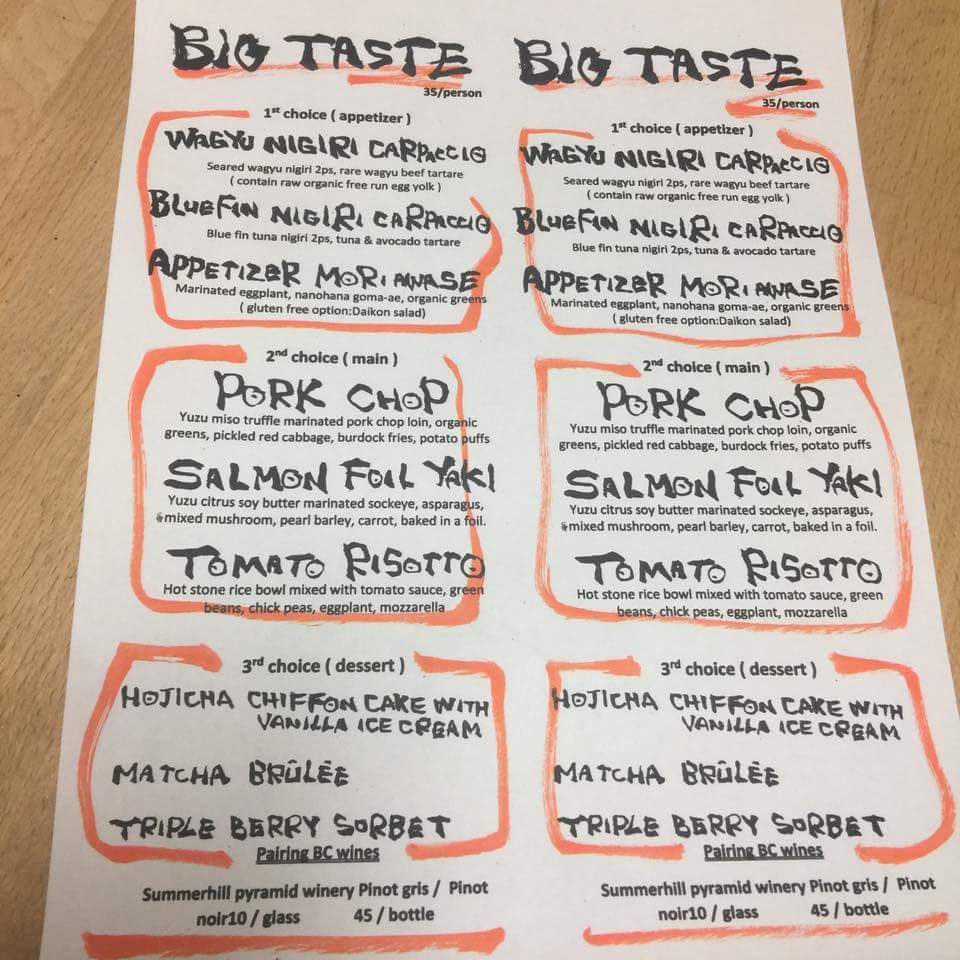 BIG TASTE
35/person
1st choice ( appetizer )
WAGYU NIGIRI CARPACCIO
Seared wagyu nigiri 2ps, rare wagyu beef tartare
( contain raw organic free run egg yolk )
BLUEFIN NIGIRI CARPACCIO
Blue fin tuna nigiri 2ps, tuna & avocado tartare
APPETIZER MORIAWASE
Marinated eggplant, nanohana goma-ae, organic greens
( gluten free option:Daikon salad)
2nd choice ( main )
PORK CHOP
Yuzu miso truffle marinated pork chop loin, organic
greens, pickled red cabbage, burdock fries, potato puffs
SALMON FOIL YAKI
Yuzu citrus soy butter marinated sockeye, asparagus,
mixed mushroom, pearl barley, carrot, baked in a foil.
TOMATO RISOTTO
Hot stone rice bowl mixed with tomato sauce, green
beans, chick peas, eggplant, mozzarella
3rd choice ( dessert )
HOJICHA CHIFFON CAKE WITH
VANILLA ICE CREAM
MATCHA BRÛLÉE
TRIPLE BERRY SORBET
Pairing BC wines
Summerhill pyramid winery Pinot gris / Pinot
noir10 / glass 45 / bottle
BIG TASTE
35/person
1st choice ( appetizer )
WAGYU NIGIRI CARPACCIO
Seared wagyu nigiri 2ps, rare wagyu beef tartare
( contain raw organic free run egg yolk )
BLUEFIN NIGIRI CARPACCIO
Blue fin tuna nigiri 2ps, tuna & avocado tartare
APPETIZER MORIAWASE
Marinated eggplant, nanohana goma-ae, organic greens
( gluten free option:Daikon salad)
2nd choice ( main )
PORK CHOP
Yuzu miso truffle marinated pork chop loin, organic
greens, pickled red cabbage, burdock fries, potato puffs
SALMON FOIL YAKI
Yuzu citrus soy butter marinated sockeye, asparagus,
mixed mushroom, pearl barley, carrot, baked in a foil.
TOMATO RISOTTO
Hot stone rice bowl mixed with tomato sauce, green
beans, chick peas, eggplant, mozzarella
3rd choice ( dessert )
HOJICHA CHIFFON CAKE WITH
VANILLA ICE CREAM
MATCHA BRÛLÉE
TRIPLE BERRY SORBET
Pairing BC wines
Summerhill pyramid winery Pinot gris / Pinot
noir10 / glass 45 / bottle